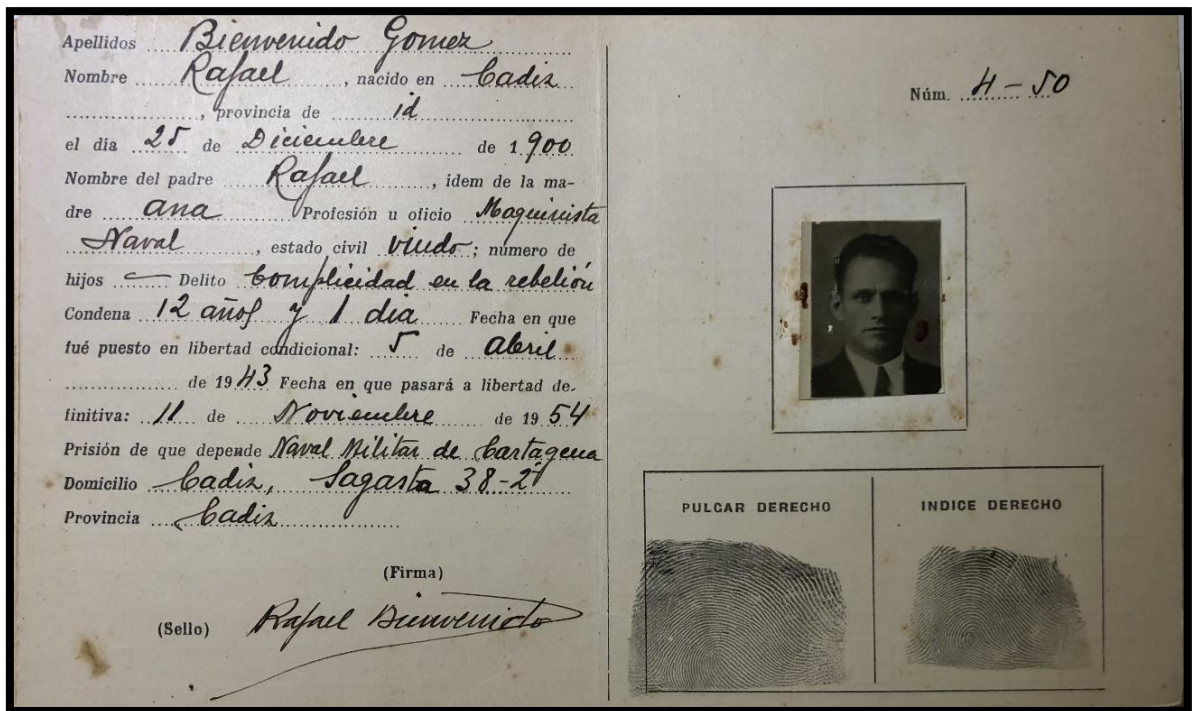 Apellidos Bienvenido Gomez
Nombre Rafael, nacido en Cadiz
, provincia de id
el día 25 de Diciembre de 1900
Nombre del padre Rafael, idem de la ma-
dre Ana Profesión u oficio Maquinista
Naval, estado civil viudo; número de
hijos — Delito Complicidad en la rebelión
Condena 12 años y 1 dia Fecha en que
fué puesto en libertad condicional: 5 de Abril
de 1943 Fecha en que pasará a libertad de-
finitiva: 11 de Noviembre de 1954
Prisión de que depende Naval Militar de Cartagena
Domicilio Cadiz, Sagasta 38-2º
Provincia Cadiz
(Firma)
(Sello) Rafael Bienvenido
Núm. 4-50
PULGAR DERECHO INDICE DERECHO